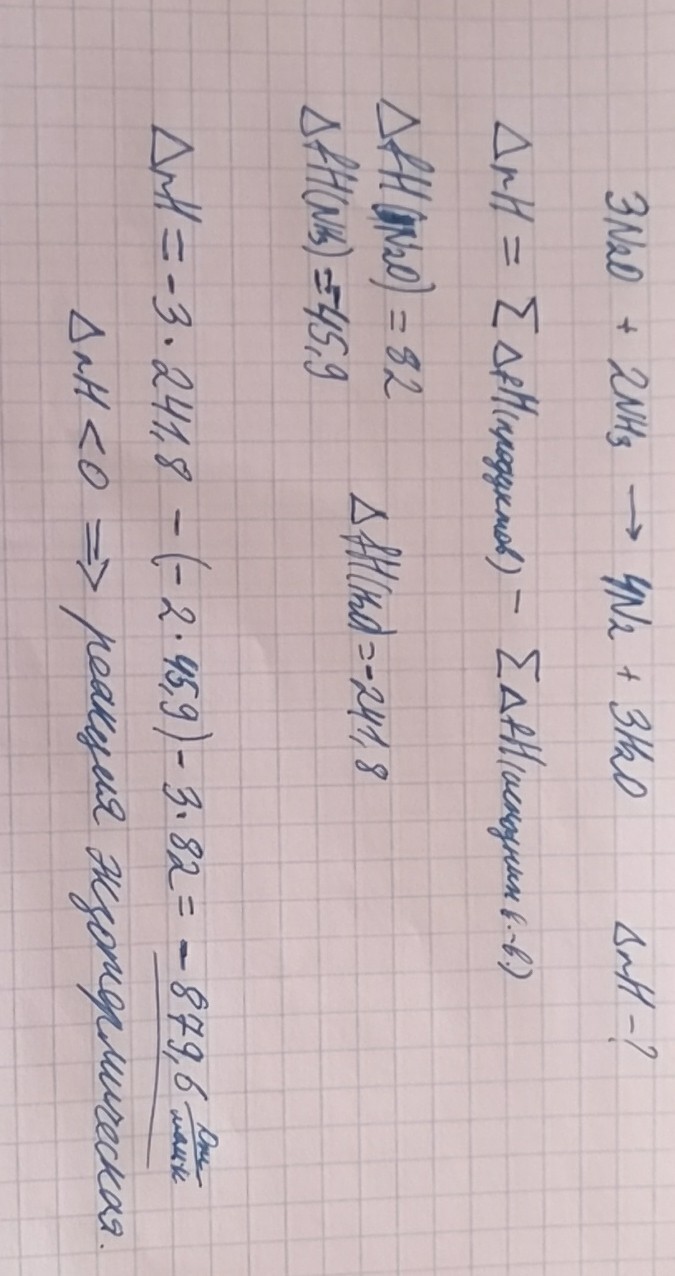 3N2O + 2NH3 → 4N2 + 3H2O ΔrH - ?
ΔrH = ∑ ΔfH(продуктов) - ∑ ΔfH(исходных в.-в.)
ΔfH(N2O) = 82
ΔfH(NH3) = -45,9 ΔfH(H2O) = -241,8
ΔrH = -3 · 241,8 - (-2 · 45,9) - 3 · 82 = -879,6
ΔrH < 0 ⇒ реакция экзотермическая.